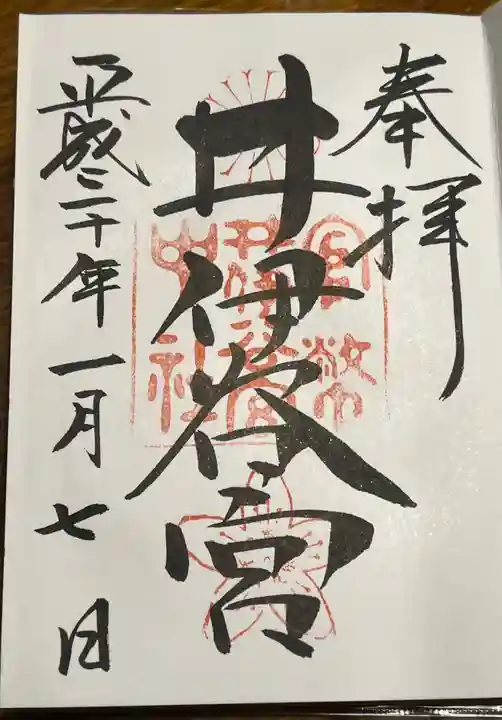 奉拝
井伊谷宮
平成三十年一月七日